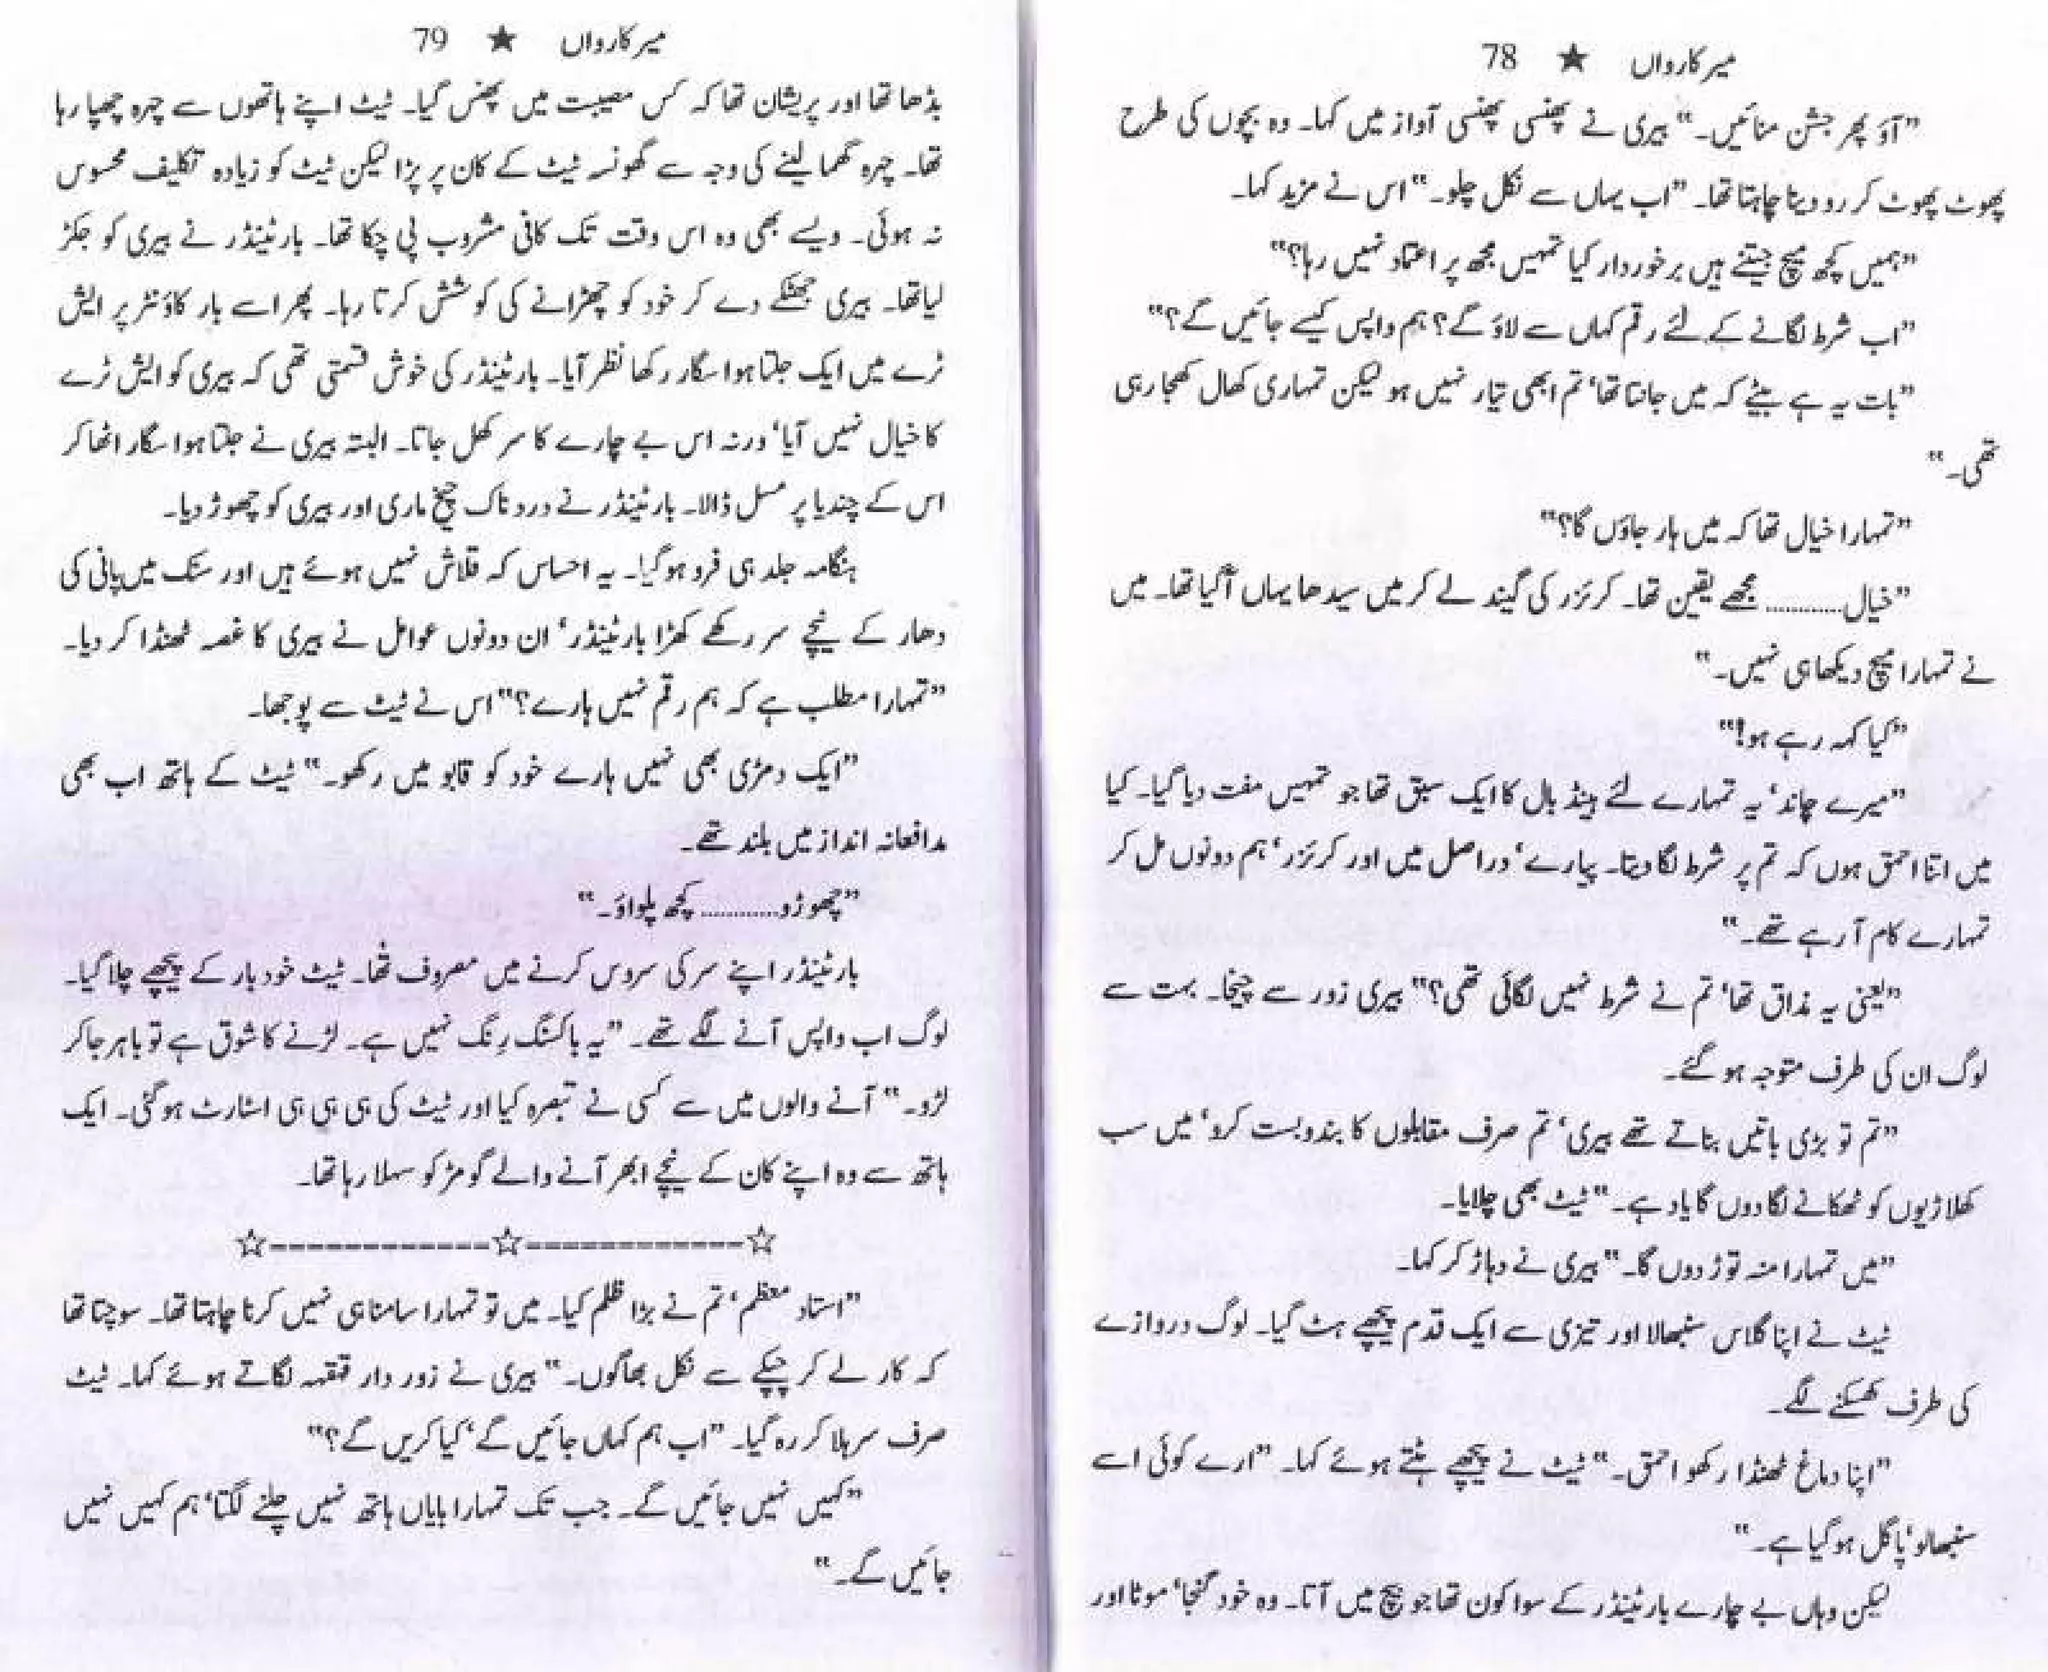 میر کارواں ★ 78
”آؤ پھر جشن منائیں۔“ بیری نے پھنسی پھنسی آواز میں کہا۔ وہ بچوں کی طرح
پھوٹ پھوٹ کر رو دینا چاہتا تھا۔ ”اب یہاں سے نکل چلو۔“ اس نے مزید کہا۔
”ہمیں کچھ میچ جیتنے ہیں برخوردار کیا تمہیں مجھ پر اعتماد نہیں رہا؟“
”اب شرط لگانے کے لئے رقم کہاں سے لاؤ گے؟ ہم واپس کیسے جائیں گے؟“
”بات یہ ہے بیٹے کہ میں جانتا تھا‘ تم ابھی تیار نہیں ہو لیکن تمہاری کھال کھجا رہی
تھی۔“
”تمہارا خیال تھا کہ میں ہار جاؤں گا؟“
”خیال............ مجھے یقین تھا۔ کرنزر کی گیند لے کر میں سیدھا یہاں آگیا تھا۔ میں
نے تمہارا میچ دیکھا ہی نہیں۔“
”کیا کہہ رہے ہو!“
”میرے چاند‘ یہ تمہارے لئے ہینڈ بال کا ایک سبق تھا جو تمہیں مفت دیا گیا۔ کیا
میں اتنا احمق ہوں کہ تم پر شرط لگا دیتا۔ پیارے‘ دراصل میں اور کرنزر‘ ہم دونوں مل کر
تمہارے کام آ رہے تھے۔“
”یعنی یہ مذاق تھا‘ تم نے شرط نہیں لگائی تھی؟“ بیری زور سے چیخا۔ بہت سے
لوگ ان کی طرف متوجہ ہو گئے۔
”تم تو بڑی باتیں بناتے تھے بیری‘ تم صرف مقابلوں کا بندوبست کرو‘ میں سب
کھلاڑیوں کو ٹھکانے لگا دوں گا یاد ہے۔“ ٹیٹ بھی چلایا۔
”میں تمہارا منہ توڑ دوں گا۔“ بیری نے دہاڑ کر کہا۔
ٹیٹ نے اپنا گلاس سنبھالا اور تیزی سے ایک قدم پیچھے ہٹ گیا۔ لوگ دروازے
کی طرف کھسکنے لگے۔
”اپنا دماغ ٹھنڈا رکھو احمق۔“ ٹیٹ نے پیچھے ہٹتے ہوئے کہا۔ ”ارے کوئی اسے
سنبھالو‘ پاگل ہو گیا ہے۔“
لیکن وہاں بے چارے بارٹینڈر کے سوا کون تھا جو بیچ میں آتا۔ وہ خود گنجا‘ موٹا اور
میر کارواں ★ 79
بڈھا تھا اور پریشان تھا کہ کس مصیبت میں پھنس گیا۔ ٹیٹ اپنے ہاتھوں سے چہرہ چھپا رہا
تھا۔ چہرہ گھما لینے کی وجہ سے گھونسہ ٹیٹ کے کان پر پڑا لیکن ٹیٹ کو زیادہ تکلیف محسوس
نہ ہوئی۔ ویسے بھی وہ اس وقت تک کافی مشروب پی چکا تھا۔ بارٹینڈر نے بیری کو جکڑ
لیا تھا۔ بیری جھٹکے دے کر خود کو چھڑانے کی کوشش کرتا رہا۔ پھر اسے بار کاؤنٹر پر ایش
ٹرے میں ایک جلتا ہوا سگار رکھا نظر آیا۔ بارٹینڈر کی خوش قسمتی تھی کہ بیری کو ایش ٹرے
کا خیال نہیں آیا‘ ورنہ اس بے چارے کا سر کھل جاتا۔ البتہ بیری نے جلتا ہوا سگار اٹھا کر
اس کے چندیا پر مسل ڈالا۔ بارٹینڈر نے دردناک چیخ ماری اور بیری کو چھوڑ دیا۔
ہنگامہ جلد ہی فرو ہو گیا۔ یہ احساس کہ قلاش نہیں ہوئے ہیں اور سنک میں پانی کی
دھار کے نیچے سر رکھے کھڑا بارٹینڈر‘ ان دونوں عوامل نے بیری کا غصہ ٹھنڈا کر دیا۔
”تمہارا مطلب ہے کہ ہم رقم نہیں ہارے؟“ اس نے ٹیٹ سے پوچھا۔
”ایک دمڑی بھی نہیں ہارے خود کو قابو میں رکھو۔“ ٹیٹ کے ہاتھ اب بھی
مدافعانہ انداز میں بلند تھے۔
”چھوڑو............ کچھ پلواؤ۔“
بارٹینڈر اپنے سر کی سروس کرنے میں مصروف تھا۔ ٹیٹ خود بار کے پیچھے چلا گیا۔
لوگ اب واپس آنے لگے تھے۔ ”یہ باکسنگ رِنگ نہیں ہے۔ لڑنے کا شوق ہے تو باہر جا کر
لڑو۔“ آنے والوں میں سے کسی نے تبصرہ کیا اور ٹیٹ کی ہی ہی ہی اسٹارٹ ہو گئی۔ ایک
ہاتھ سے وہ اپنے کان کے نیچے ابھر آنے والے گومڑ کو سہلا رہا تھا۔
☆------------☆------------☆
”استاد معظم‘ تم نے بڑا ظلم کیا۔ میں تو تمہارا سامنا ہی نہیں کرنا چاہتا تھا۔ سوچتا تھا
کہ کار لے کر چپکے سے نکل بھاگوں۔“ بیری نے زور دار قہقہہ لگاتے ہوئے کہا۔ ٹیٹ
صرف سر ہلا کر رہ گیا۔ ”اب ہم کہاں جائیں گے‘ کیا کریں گے؟“
”کہیں نہیں جائیں گے۔ جب تک تمہارا بایاں ہاتھ نہیں چلنے لگتا‘ ہم کہیں نہیں
جائیں گے۔“